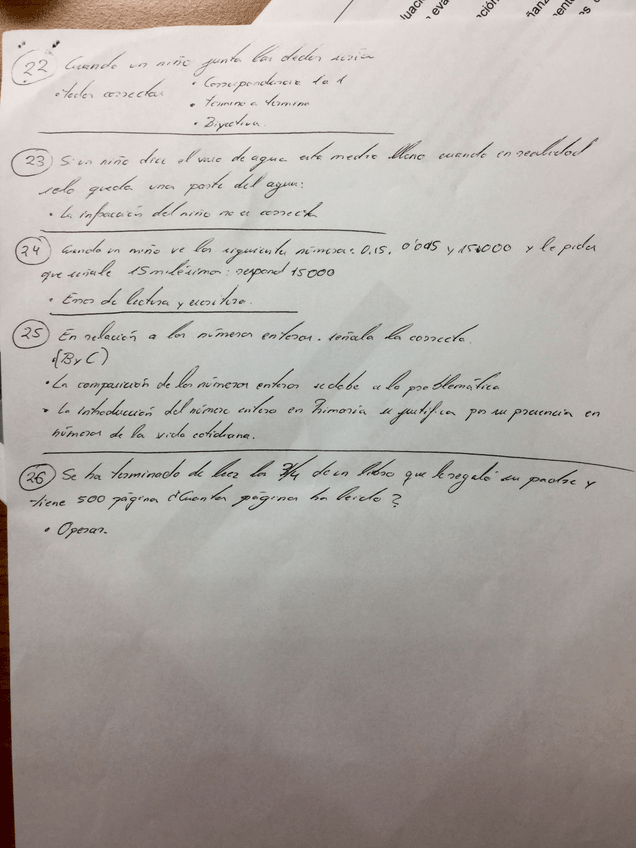 luac
n eva
ción
ñanz
ento
os
22 Cuando un niño junta los dedos sería
• todas correctas • Correspondencia 1 a 1
• término a término
• Biyectiva.
23 Si un niño dice el vaso de agua esta medio lleno cuando en realidad
solo queda una parte del agua:
• La infracción del niño no es correcta
24 Cuando un niño ve los siguientes números: 0,15, 0'015 y 15.000 y le pides
que señale 15 milésimas: respond 15000
• Error de lectura y escritura.
25 En relación a los números enteros. señala la correcta.
• (B y C)
• La comparación de los números enteros se debe a la problemática
• La introducción del número entero en Primaria se justifica por su presencia en
números de la vida cotidiana.
26 Se ha terminado de leer los 3/4 de un libro que le regaló su padre y
tiene 500 página ¿Cuantas páginas ha leido?
• Operar.